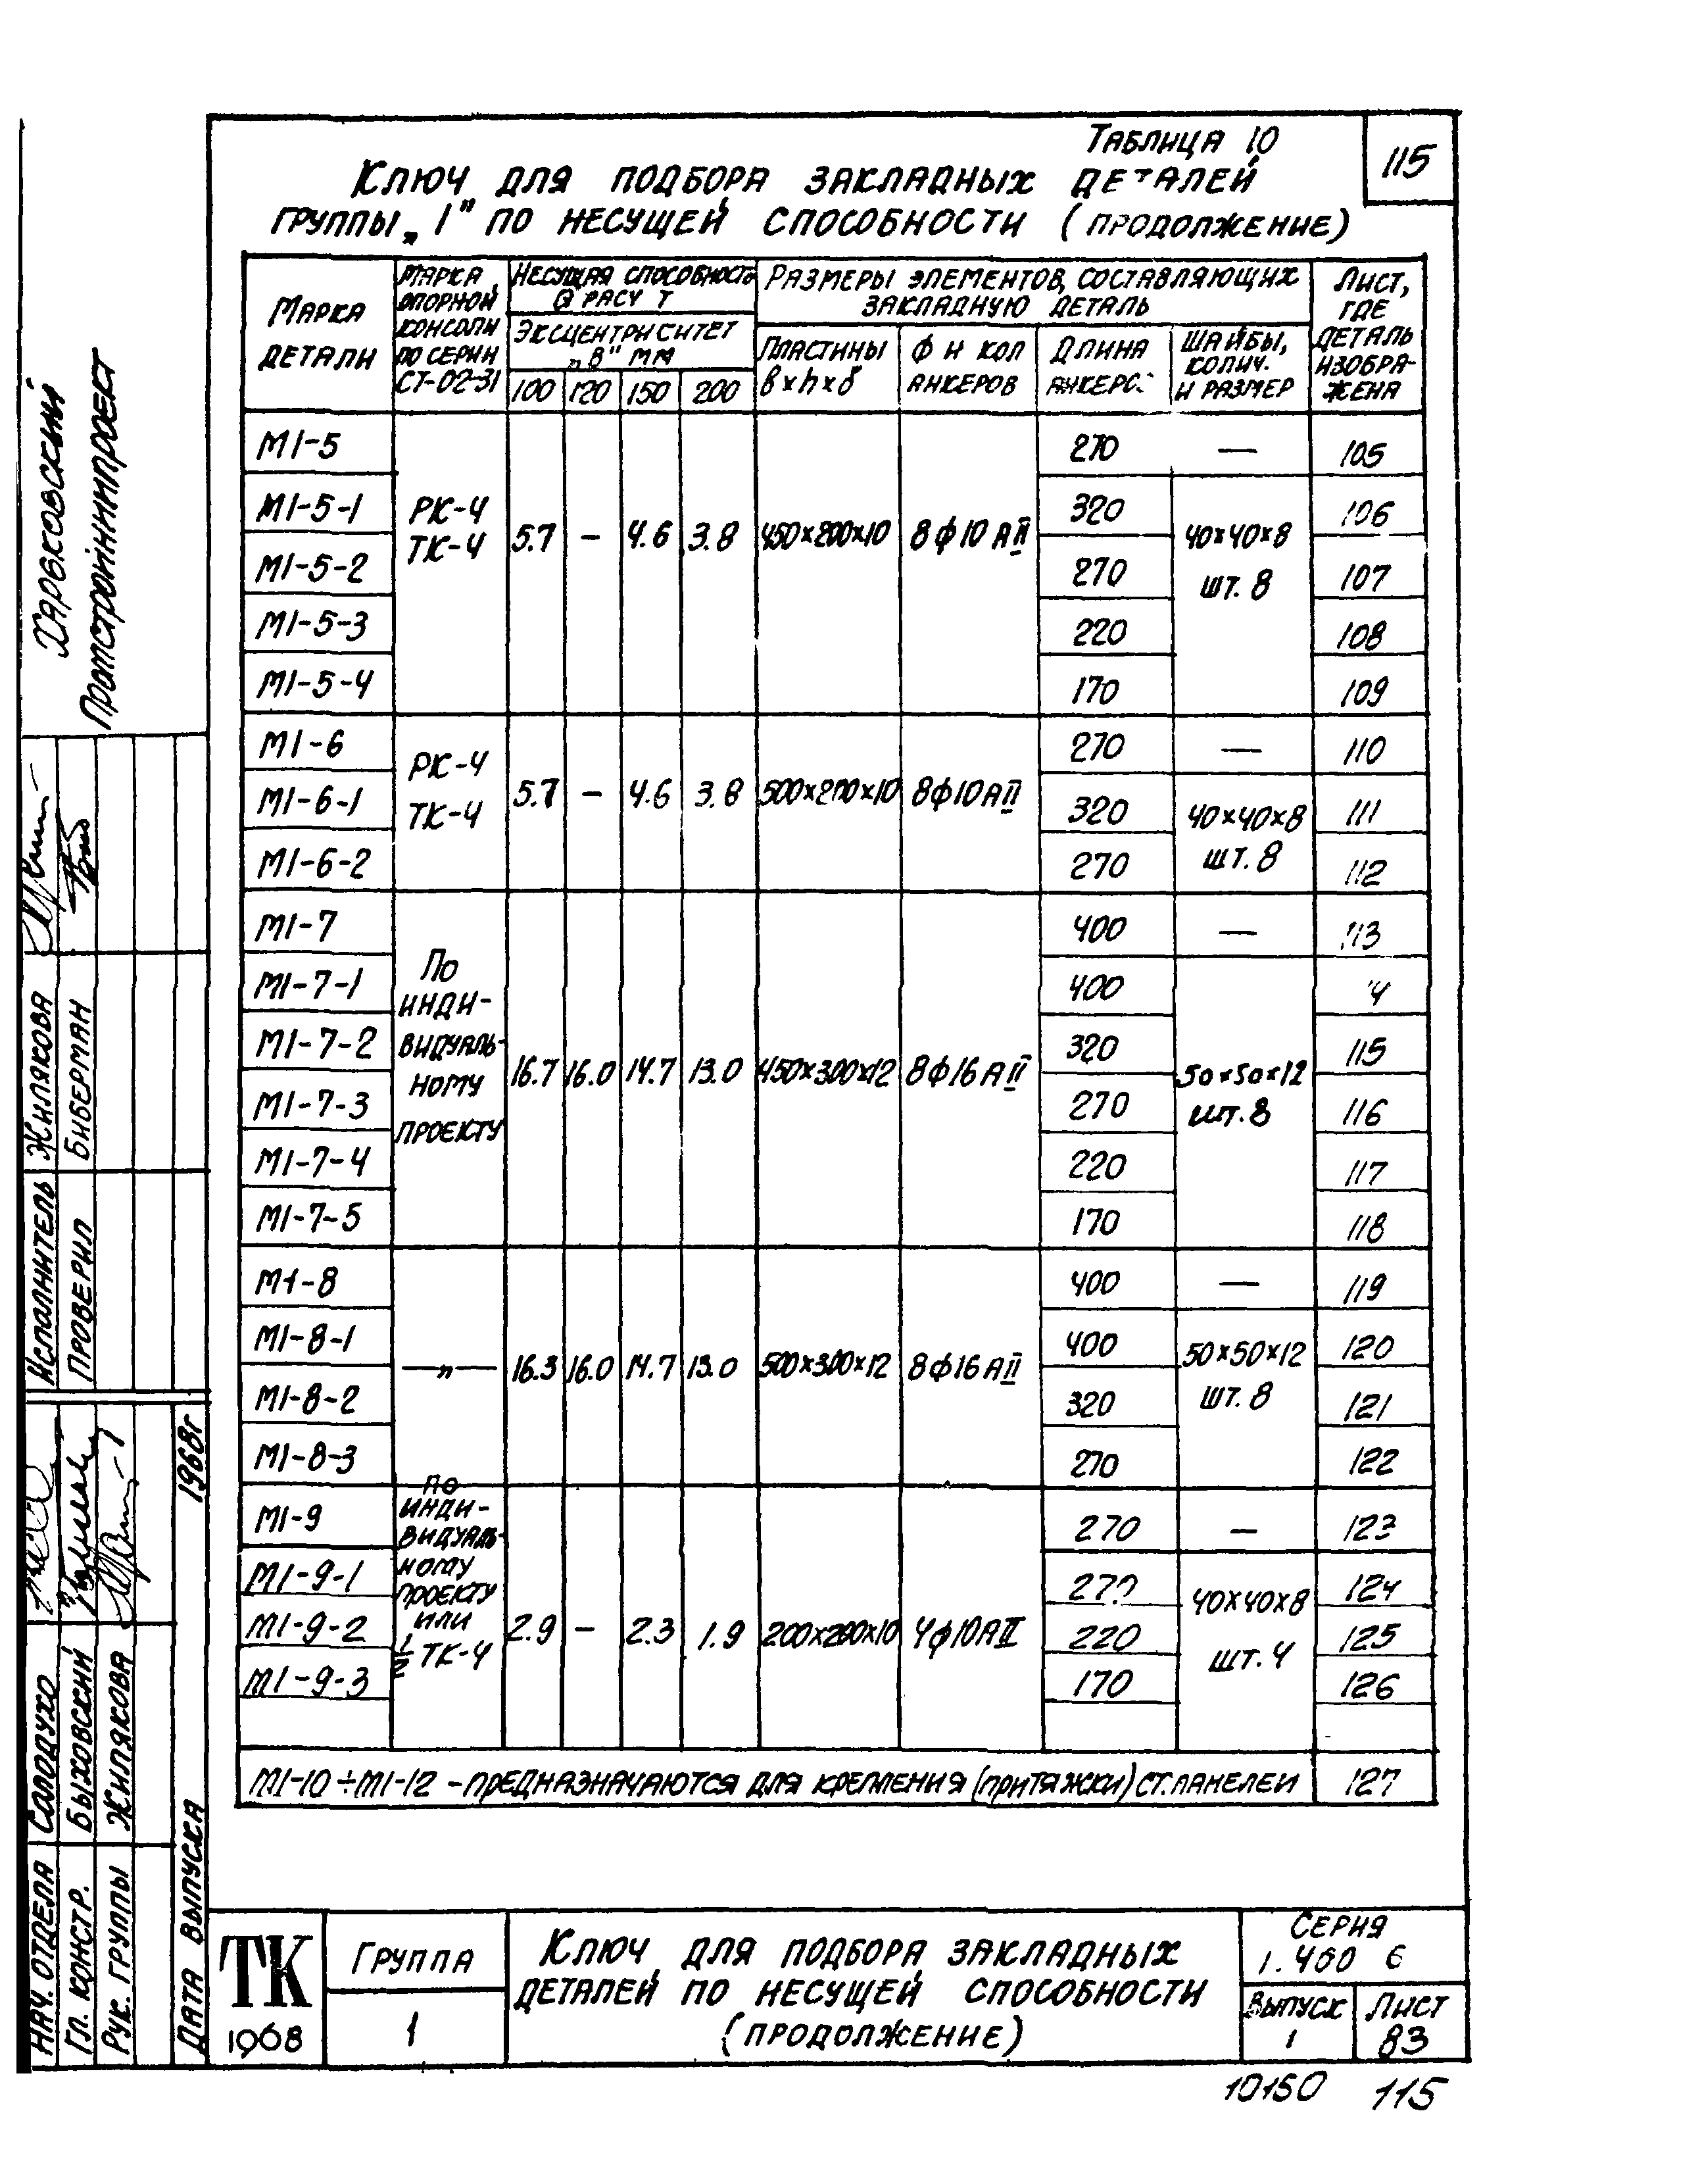 Таблица 10
115
Ключ для подбора закладных деталей
группы „1" по несущей способности (продолжение)
Марка детали
Марка опорной консоли по серии СТ-02-31
Несущая способность Q расч т
Эксцентриситет „в" мм
100 120 150 200
Размеры элементов, составляющих закладную деталь
Пластины в×h×δ
Ф и кол анкеров
Длина
Шайбы, колич. и размер
Лист, где деталь изображена
М1-5 270 — 105
М1-5-1 320 106
РК-4 ТК-4 5.7 — 4.6 3.8 450×200×10 8ф10АII 40×40×8 шт. 8
М1-5-2 270 107
М1-5-3 220 108
М1-5-4 170 109
М1-6 270 — 110
РК-4 ТК-4 5.7 — 4.6 3.8 500×200×10 8ф10АII
М1-6-1 320 40×40×8 111
М1-6-2 270 шт. 8 112
М1-7 400 — 113
М1-7-1 400 4
М1-7-2 320 115
По индивидуальному проекту 16.7 16.0 14.7 13.0 450×300×12 8ф16АII 50×50×12 шт. 8
М1-7-3 270 116
М1-7-4 220 117
М1-7-5 170 118
М1-8 400 — 119
М1-8-1 400 120
—„— 16.3 16.0 14.7 13.0 500×300×12 8ф16АII 50×50×12 шт. 8
М1-8-2 320 121
М1-8-3 270 122
М1-9 270 — 123
М1-9-1 270 124
По индивидуальному проекту или ½ТК-4 2.9 — 2.3 1.9 200×200×10 4ф10АII 40×40×8 шт. 4
М1-9-2 220 125
М1-9-3 170 126
М1-10÷М1-12 - предназначаются для крепления (притяжки) ст. панелей 127
ТК
1968
Группа
1
Ключ для подбора закладных
деталей по несущей способности
(продолжение)
Серия
1.400 6
Выпуск
1
Лист
83
10150 115
Харьковский
Промстройниипроект
Исполнитель Жилякова
Проверил Биберман
Нач. отдела Солодухо
Гл. констр. Быховский
Рук. группы Жилякова
Дата выпуска 1968г